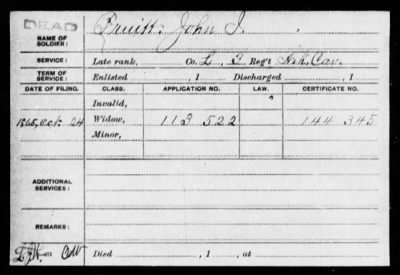 DEAD
NAME OF SOLDIER: Pruitt, John I.
SERVICE: Late rank, Co. L, 3 Reg't Ark. Cav.
TERM OF SERVICE: Enlisted , 1 Discharged , 1
DATE OF FILING. CLASS. APPLICATION NO. LAW. CERTIFICATE NO.
Invalid,
1865, Oct. 24 Widow, 113 522 144 345
Minor,
ADDITIONAL SERVICES:
REMARKS:
Died , 1 , at